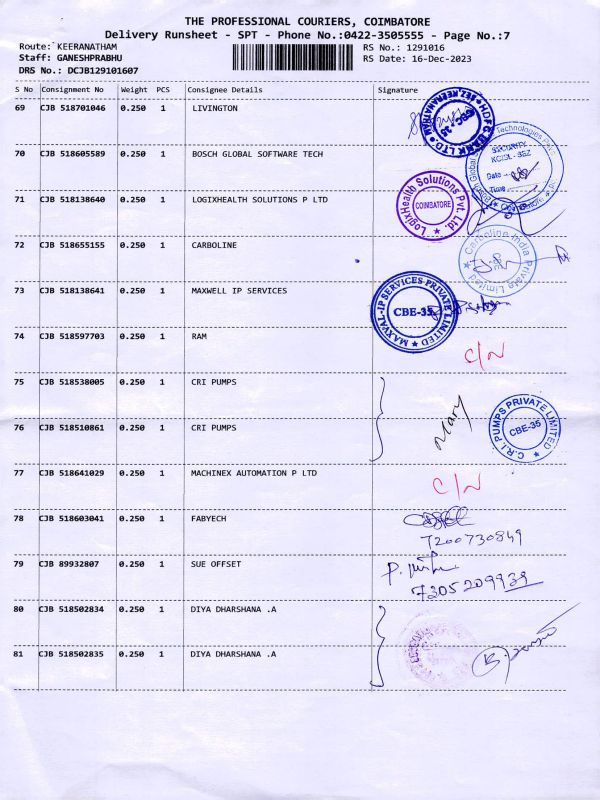 THE PROFESSIONAL COURIERS, COIMBATORE
Delivery Runsheet - SPT - Phone No.:0422-3505555 - Page No.:7
Route: KEERANATHAM RS No.: 1291016
Staff: GANESHPRABHU RS Date: 16-Dec-2023
DRS No.: DCJB129101607
S No Consignment No Weight PCS Consignee Details Signature
69 CJB 518701046 0.250 1 LIVINGTON
HDFC BANK LTD
SEZ KEERANATHAM
70 CJB 518605589 0.250 1 BOSCH GLOBAL SOFTWARE TECH
Bosch Global Technologies
SECURITY
KCISL - SEZ
Date
Time
71 CJB 518138640 0.250 1 LOGIXHEALTH SOLUTIONS P LTD
LogixHealth Solutions Pvt. Ltd.
COIMBATORE
72 CJB 518655155 0.250 1 CARBOLINE
Carboline India Private Limited
73 CJB 518138641 0.250 1 MAXWELL IP SERVICES
MAXVAL-IP SERVICES PRIVATE LIMITED
CBE-35
74 CJB 518597703 0.250 1 RAM
C/N
75 CJB 518538005 0.250 1 CRI PUMPS
76 CJB 518510861 0.250 1 CRI PUMPS
Mary
C.R.I. PUMPS PRIVATE LIMITED
CBE-35
77 CJB 518641029 0.250 1 MACHINEX AUTOMATION P LTD
C/N
78 CJB 518603041 0.250 1 FABYECH
7200730849
79 CJB 89932807 0.250 1 SUE OFFSET
7305209939
80 CJB 518502834 0.250 1 DIYA DHARSHANA .A
81 CJB 518502835 0.250 1 DIYA DHARSHANA .A